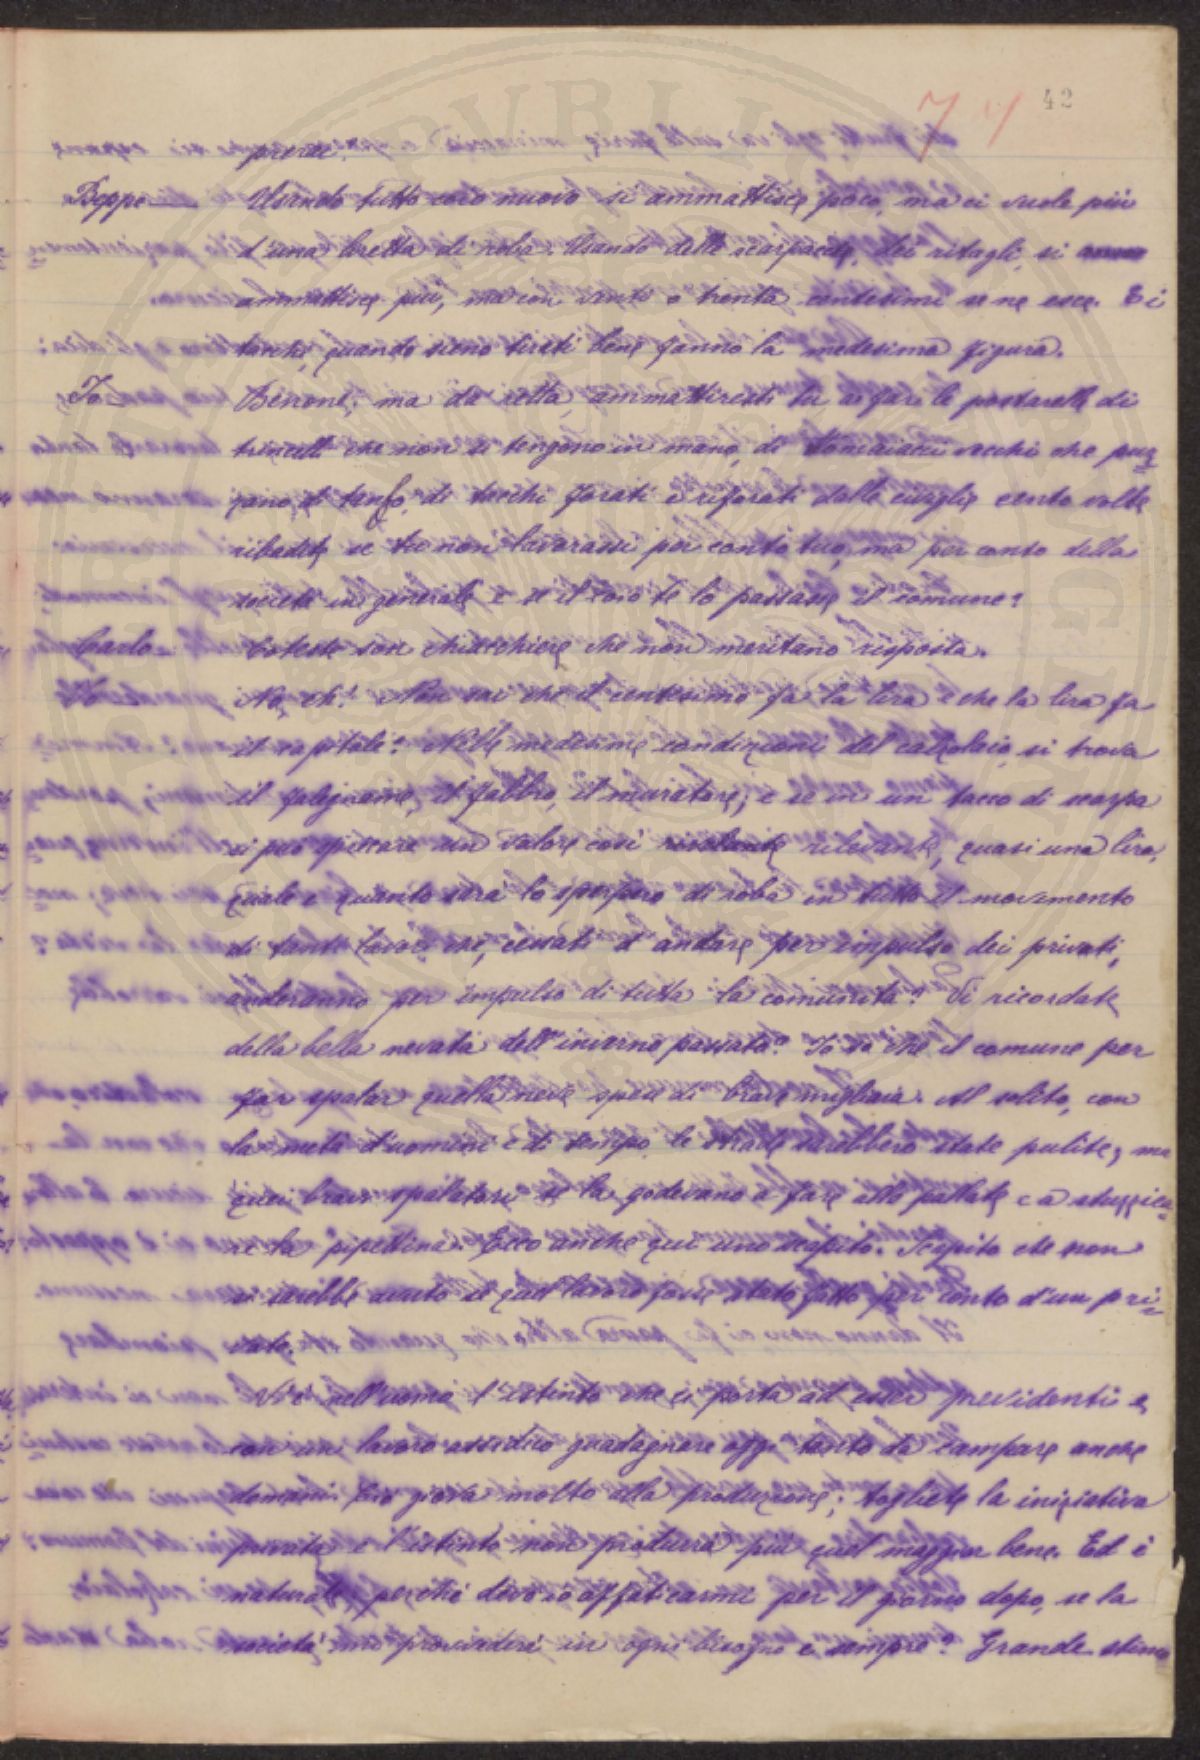 42
prezzi.
Beppe — Usando tutto coio nuovo si ammattisce poco, ma ci vuole più
d'una liretta di roba. Usando delle scarpacce, dei ritagli, si
ammattisce più, ma con venti o trenta centesimi se ne esce. E i
tacchi, quando sieno tirati bene fanno la medesima figura.
Io — Benone; ma da retta, ammattiresti tu a far le pastarelle di
trincelli che non si tengono in mano, di tomaiacci vecchi che puz
zano di tanfo, di tacchi forati e riforati dalle cavaglie cento volte
ribadite se tu non lavorassi per conto tuo, ma per conto della
società in generale e se il coio te lo passasse il comune?
Carlo — Coteste son chiacchiere che non meritano risposta.
Io — No, eh! Non sai che il centesimo fa la lira e che la lira fa
il capitale? Nelle medesime condizioni del calzolaio, si trova
il falegname, il fabbro, il muratore; e se in un tacco di scarpa
si può spiccare un valore così rilevante, quasi una lira,
quale e quanto sarà lo sperpero di roba in tutto il movimento
di tanti lavori che, cessati d'andare per impulso dei privati,
anderanno per impulso di tutta la comunità? Vi ricordate
della bella nevata dell'inverno passato? Io so che il comune per
far spalar quella neve spese di brave migliaia. Al solito, con
la metà d'uomini e di tempo le strade sarebbero state pulite; ma
quei bravi spalatori se la godevano a fare alle pallate e a stuzzica
re la pipettina. Ecco anche qui uno scapito. Scapito che non
si sarebbe avuto se quel lavoro fosse stato fatto per conto d'un pri
vato.
V'è nell'uomo l'istinto che ci porta ad esser previdenti e,
con un lavoro assiduo guadagnare oggi tanto da campare anche
domani. Ciò giova molto alla produzione; togliete la iniziativa
privata e l'istinto non produrrà più quel maggior bene. Ed è
naturale, perché devo io affaticarmi per il giorno dopo, se la
società mi provvederà in ogni bisogno e sempre? Grande